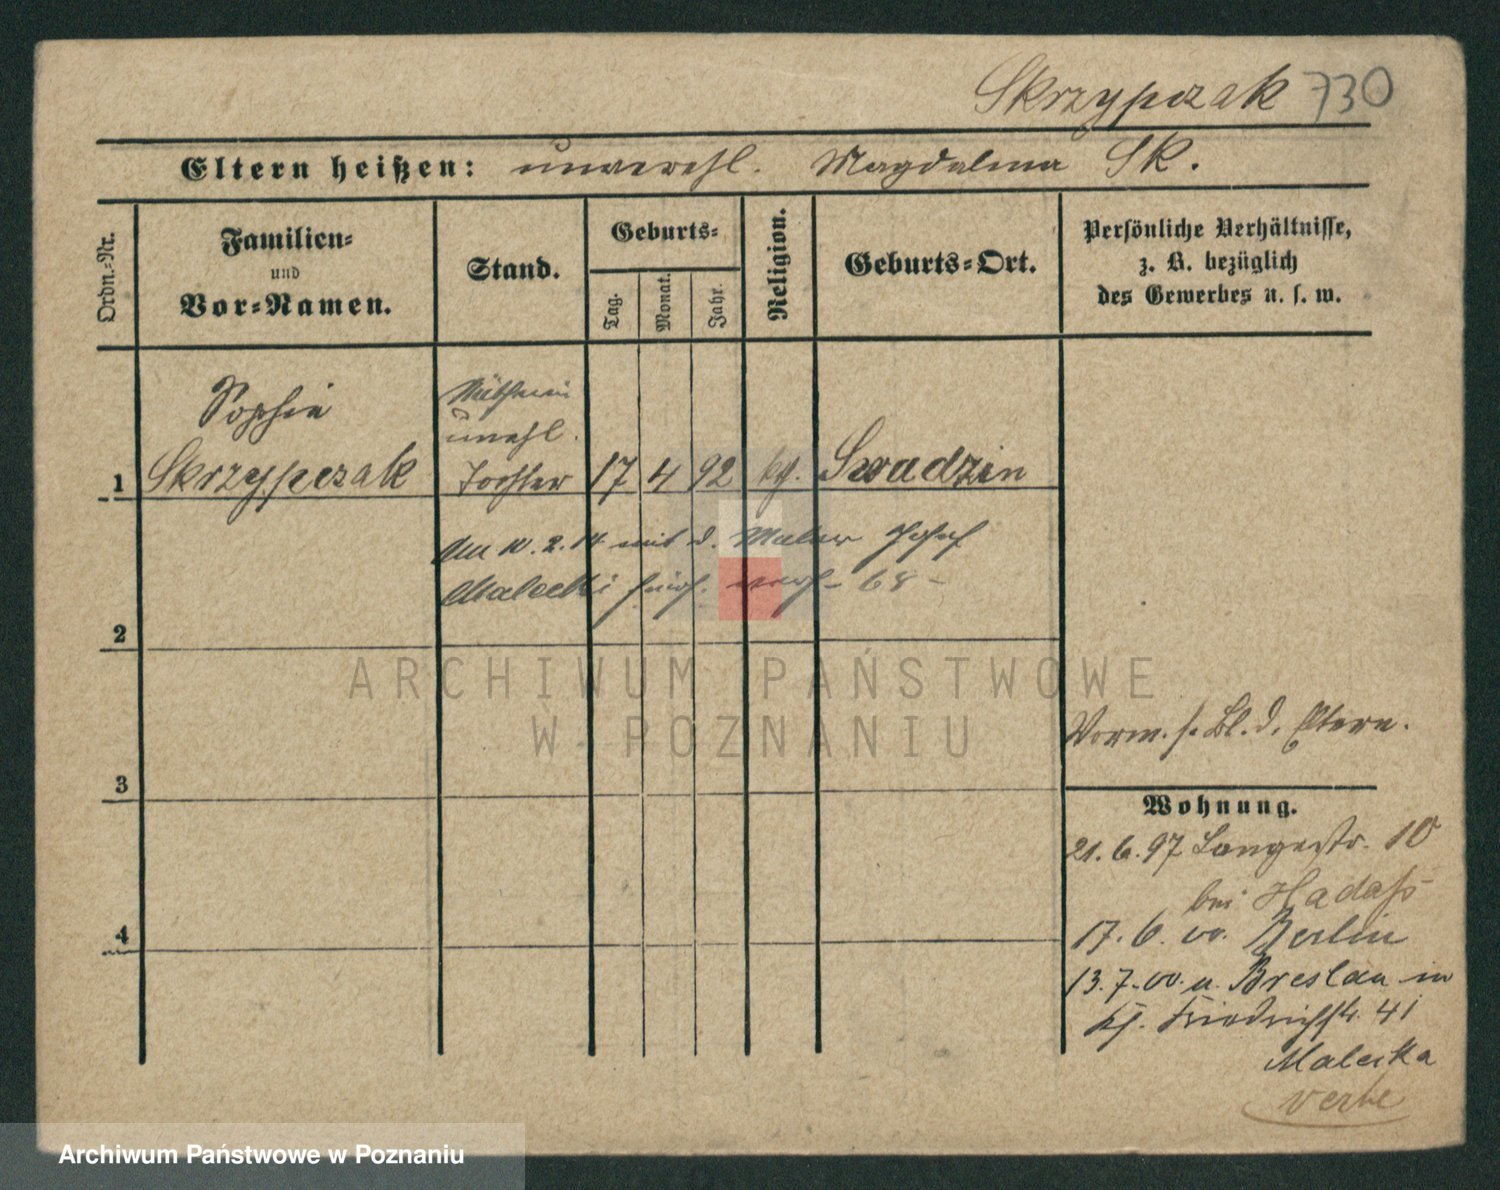 Skrzypczak 730
Eltern heißen: unverehl. Magdalena Sk.
Ordn.-Nr.
Familien-
und
Vor-Namen.
Stand.
Geburts-
Tag.
Monat.
Jahr.
Religion.
Geburts-Ort.
Persönliche Verhältnisse,
z. B. bezüglich
des Gewerbes u. s. w.
Sophie
unehl.
1 Skrzypczak Tochter 17 4 92 kth. Swadzin
Am 10.2.14 mit d. Maler Josef
Malecki hier verh- 68-
2
3
4
Vorm. s. Bl. d. Eltern.
Wohnung.
21.6.97 Langestr. 10
bei Hadaß
17.6.00. Berlin
13.7.00. u. Breslau in
Friedrichstr. 41
Malecka
verte
ARCHIWUM PAŃSTWOWE
W POZNANIU
Archiwum Państwowe w Poznaniu